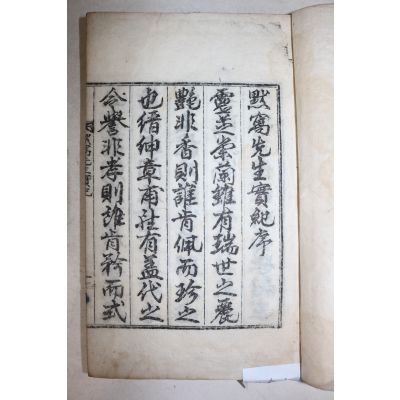 默窩先生實紀序
靈芝崇蘭雖有瑞世之麗
艶非香則誰肯佩而珍之
也縉紳章甫雖有蓋代之
令譽非孝則誰肯矜而式